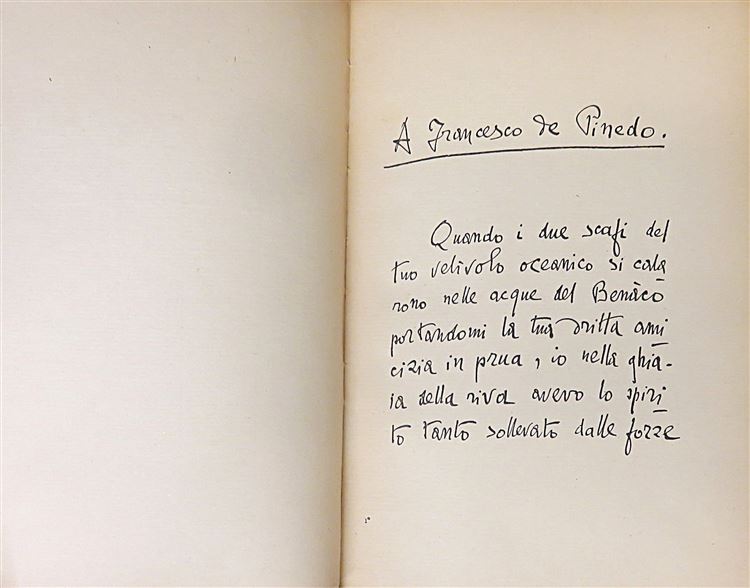 A Francesco de Pinedo.
Quando i due scafi del
tuo velivolo oceanico si cala
rono nelle acque del Benàco
portandomi la tua dritta ami
cizia in prua, io nella ghia-
ia della riva avevo lo spiri
to tanto sollevato dalle forze